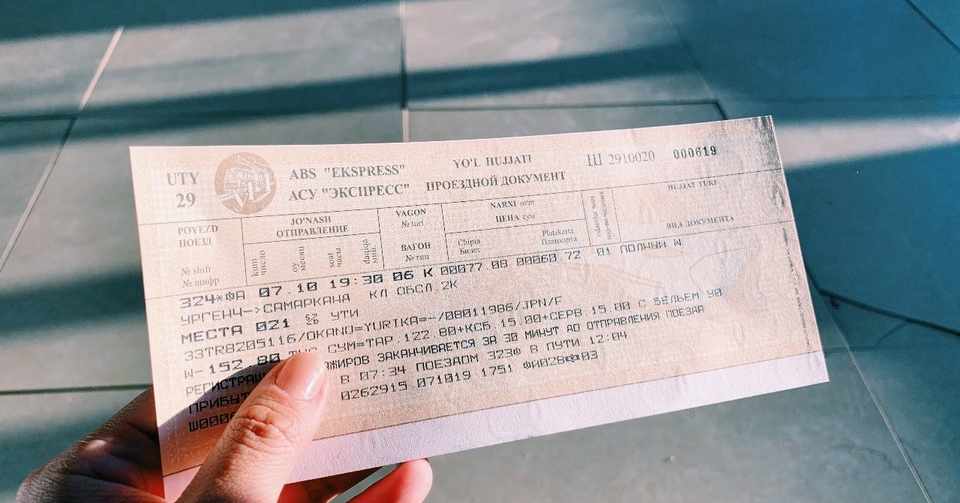 UTY
29
ABS "EKSPRESS"
АСУ "ЭКСПРЕСС"
YO'L HUJJATI
ПРОЕЗДНОЙ ДОКУМЕНТ
Ш 2910020 000619
POYEZD
ПОЕЗД
№ shifr
№ шифр
JO'NASH
ОТПРАВЛЕНИЕ
kun
число
oy
месяц
soat
часы
daqiqa
мин.
VAGON
№ turi
ВАГОН
№ тип
NARXI so'm
ЦЕНА сум
Chipta
Билет
Platskarta
Плацкарта
HUJJAT TURI
ВИД ДОКУМЕНТА
324*ФА 07.10 19:30 06 К 00077.08 00060.72 01 ПОЛНЫЙ W
УРГЕНЧ->САМАРКАНД КЛ ОБСЛ.2К
МЕСТА 021 УТИ
33TR8205116/OKANO=YURIKA=-/08011986/JPN/F
W-152.80 СУМ=ТАР.122.80+КСБ.15.00+СЕРВ.15.00 С БЕЛЬЕМ У0
ЗАКАНЧИВАЕТСЯ ЗА 30 МИНУТ ДО ОТПРАВЛЕНИЯ ПОЕЗДА
В 07:34 ПОЕЗДОМ 323Ф В ПУТИ 12:04
0262915 071019 1751